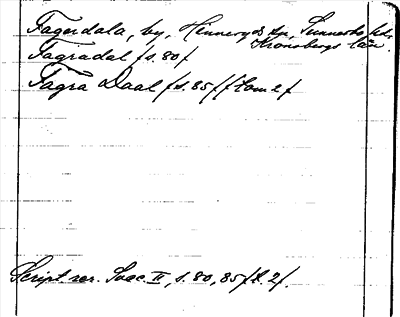 Fagerdala, by, Hinneryds sn, Sunnerbo hd,
Kronobergs län.
Fagradal /s. 80/
Fagra Daal /s. 85/ /tom 2/
Script. rer. Svec. II, s. 80, 85 /t. 2/.